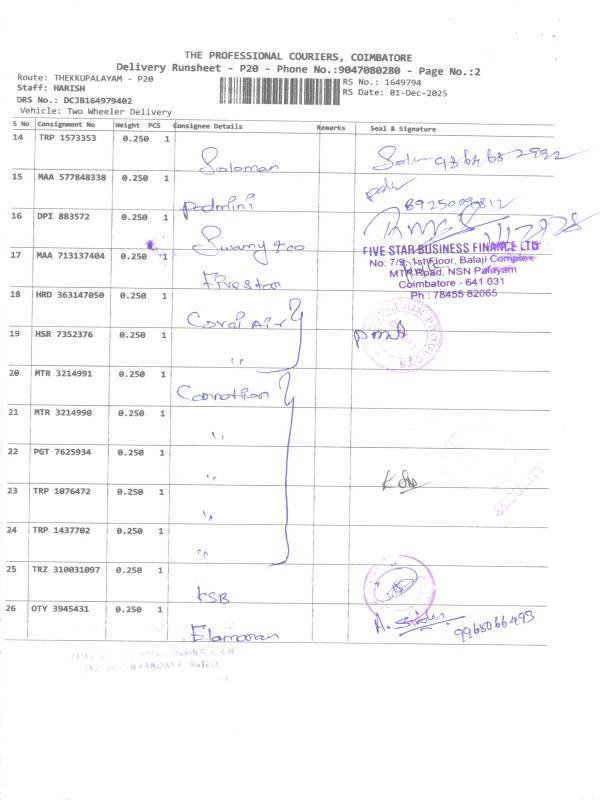 THE PROFESSIONAL COURIERS, COIMBATORE
Delivery Runsheet - P20 - Phone No.:9047080280 - Page No.:2
Route: THEKKUPALAYAM - P20
RS No.: 1649794
Staff: HARISH
RS Date: 01-Dec-2025
DRS No.: DCJB164979402
Vehicle: Two Wheeler Delivery
S No Consignment No Weight PCS Consignee Details Remarks Seal & Signature
14 TRP 1573353 0.250 1
Soloman
15 MAA 577848338 0.250 1
Padmini 8925009812
16 DPI 883572 0.250 1
Swamy & co
17 MAA 713137404 0.250 1
Five Star
FIVE STAR BUSINESS FINANCE LTD
No: 7/9, 1st Floor, Balaji Complex
MTP Road, NSN Palayam
Coimbatore - 641 031
Ph : 78455 82065
18 HRD 363147050 0.250 1
Coval Air
19 HSR 7352376 0.250 1
"
AIR PRODUCTS
20 MTR 3214991 0.250 1
21 MTR 3214990 0.250 1
"
22 PGT 7625934 0.250 1
"
23 TRP 1076472 0.250 1
"
SECURITY
24 TRP 1437702 0.250 1
"
25 TRZ 310031097 0.250 1
KSB
26 OTY 3945431 0.250 1
Elamaran
9965066493